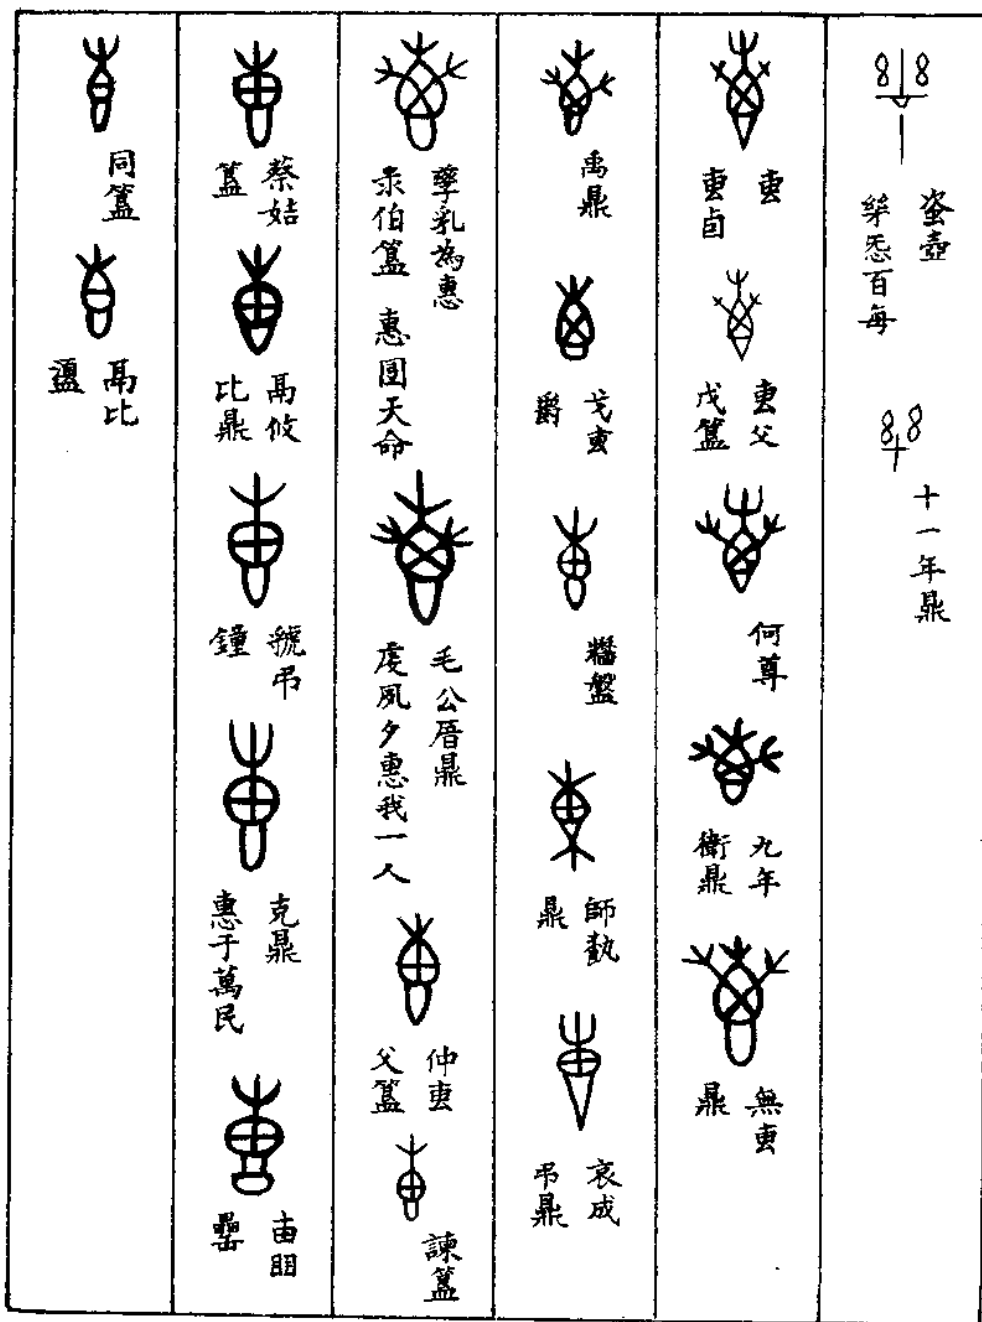 𧊒壺
桼忢百每
十一年鼎
叀
叀卣
叀父
戊簋
何尊
九年
衛鼎
無叀
鼎
禹鼎
戈叀
爵
牆盤
師𩛥
鼎
哀成
弔鼎
孳乳為惠
彔伯簋 惠弘天命
毛公厝鼎
虔夙夕惠我一人
仲叀
父簋
諫簋
蔡姞
簋
鬲攸
比鼎
虢弔
鐘
克鼎
惠于萬民
罍
同簋
鬲比
盨